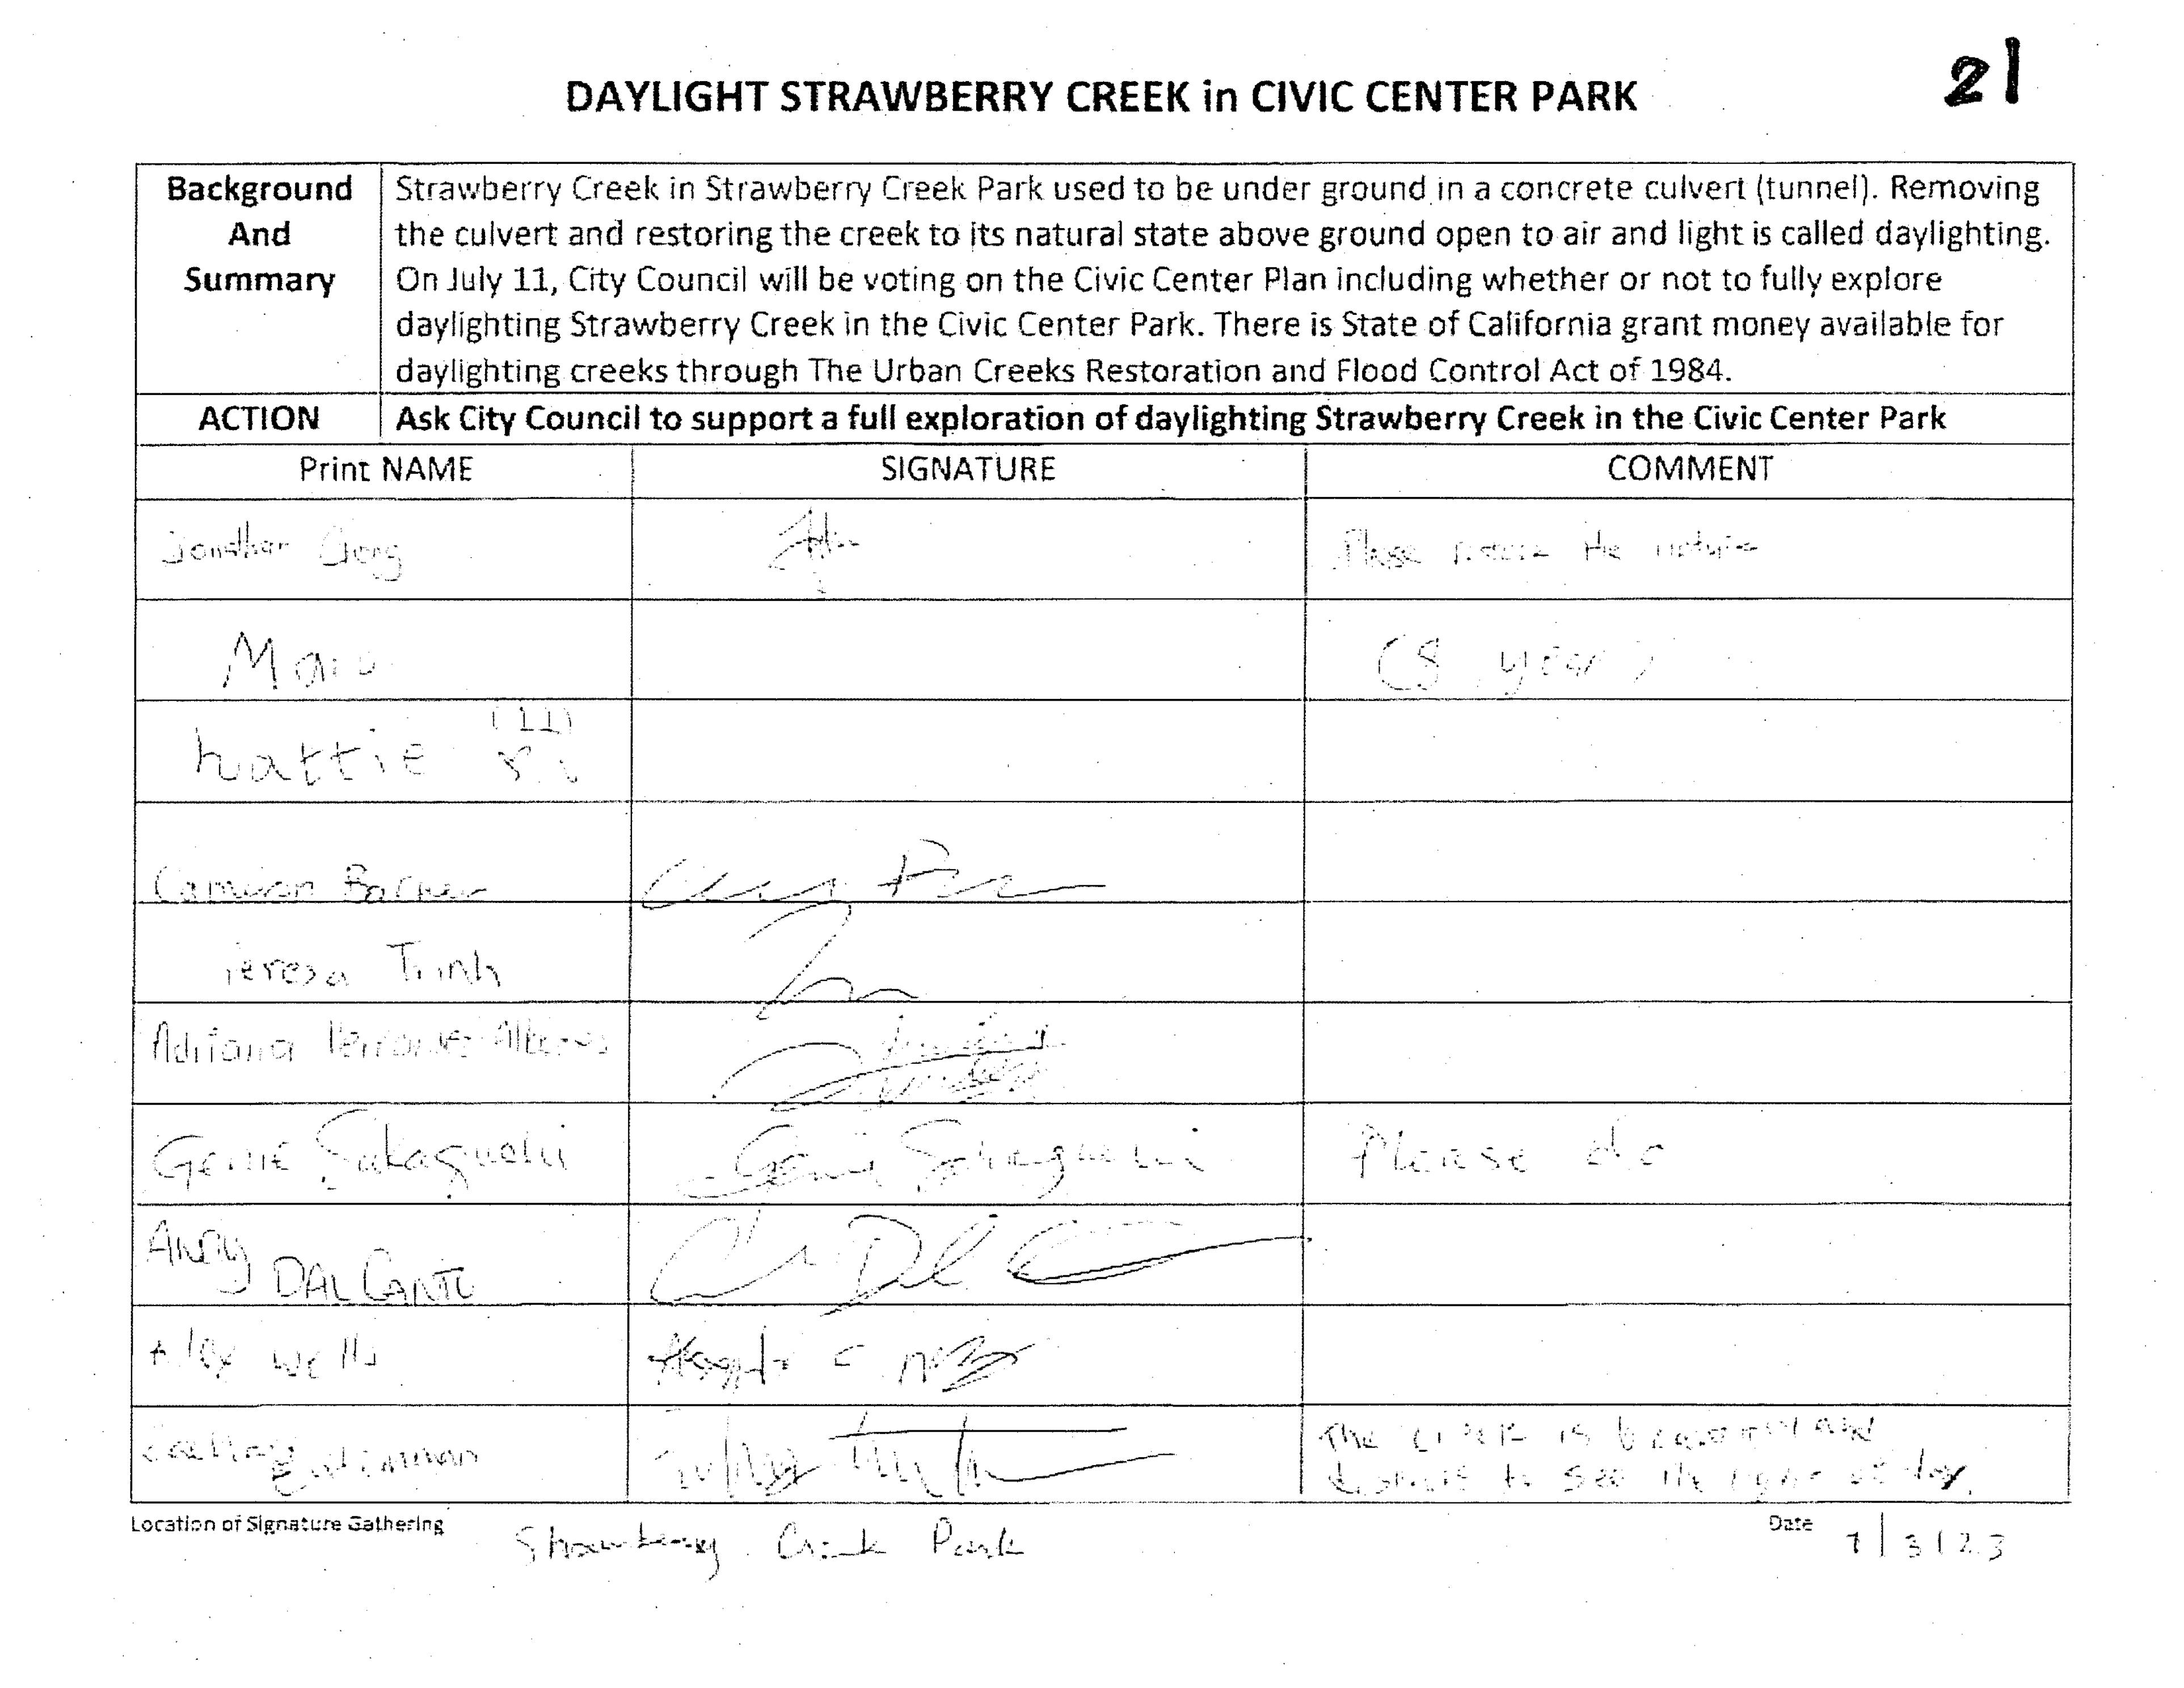 21
DAYLIGHT STRAWBERRY CREEK in CIVIC CENTER PARK
Background And Summary
Strawberry Creek in Strawberry Creek Park used to be under ground in a concrete culvert (tunnel). Removing
the culvert and restoring the creek to its natural state above ground open to air and light is called daylighting.
On July 11, City Council will be voting on the Civic Center Plan including whether or not to fully explore
daylighting Strawberry Creek in the Civic Center Park. There is State of California grant money available for
daylighting creeks through The Urban Creeks Restoration and Flood Control Act of 1984.
ACTION Ask City Council to support a full exploration of daylighting Strawberry Creek in the Civic Center Park
Print NAME SIGNATURE COMMENT
Jonathan Please the nature
(8 year)
hattie (11)
Teresa Trinh
Adriana
Genie Sakaguchi Genie Sakaguchi Please do
Andy DAL CANTO
Alex Wells
The is
to see the light of day.
Location of Signature Gathering Strawberry Creek Park Date 7/3/23